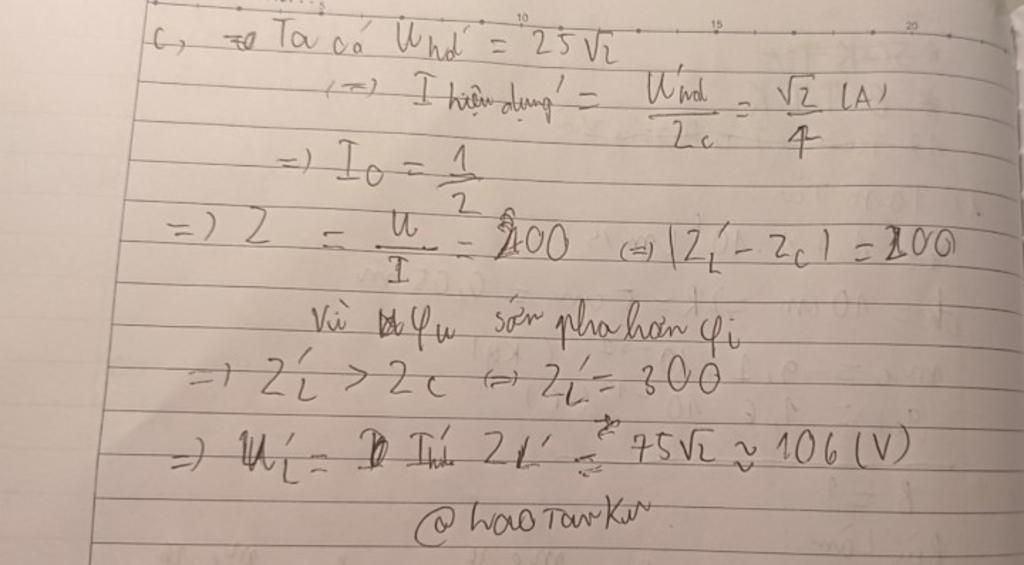 5 10 15 20
c, => Ta có U'hd = 25√2
(=>) I hiệu dụng' = U'hd / Zc = √2 / 4 (A)
=> I0 = 1/2
=> Z = U / I = 200 <=> |ZL' - Zc| = 200
Vì φu sớm pha hơn φi
=> ZL' > Zc <=> ZL' = 300
=> UL' = I'hd ZL' = 75√2 ≈ 106 (V)